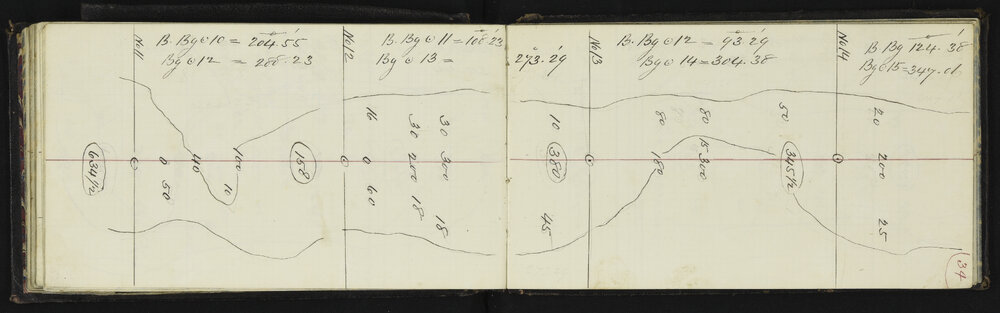 No 11
B. Bg @ 10 = 204.55
Bg @ 12 = 288.23
No 12
B. Bg @ 11 = 108.23
Bg @ 13 = 273.29
No 13
B. Bg @ 12 = 93.29
Bg @ 14 = 304.38
No 14
B. Bg 124.38
Bg @ 15 = 347.01
634½
0
50
40
100
10
158
16
0
60
30
30
200
300
18
18
10
380
45
80
80
180
15
300
50
345½
20
200
25
34